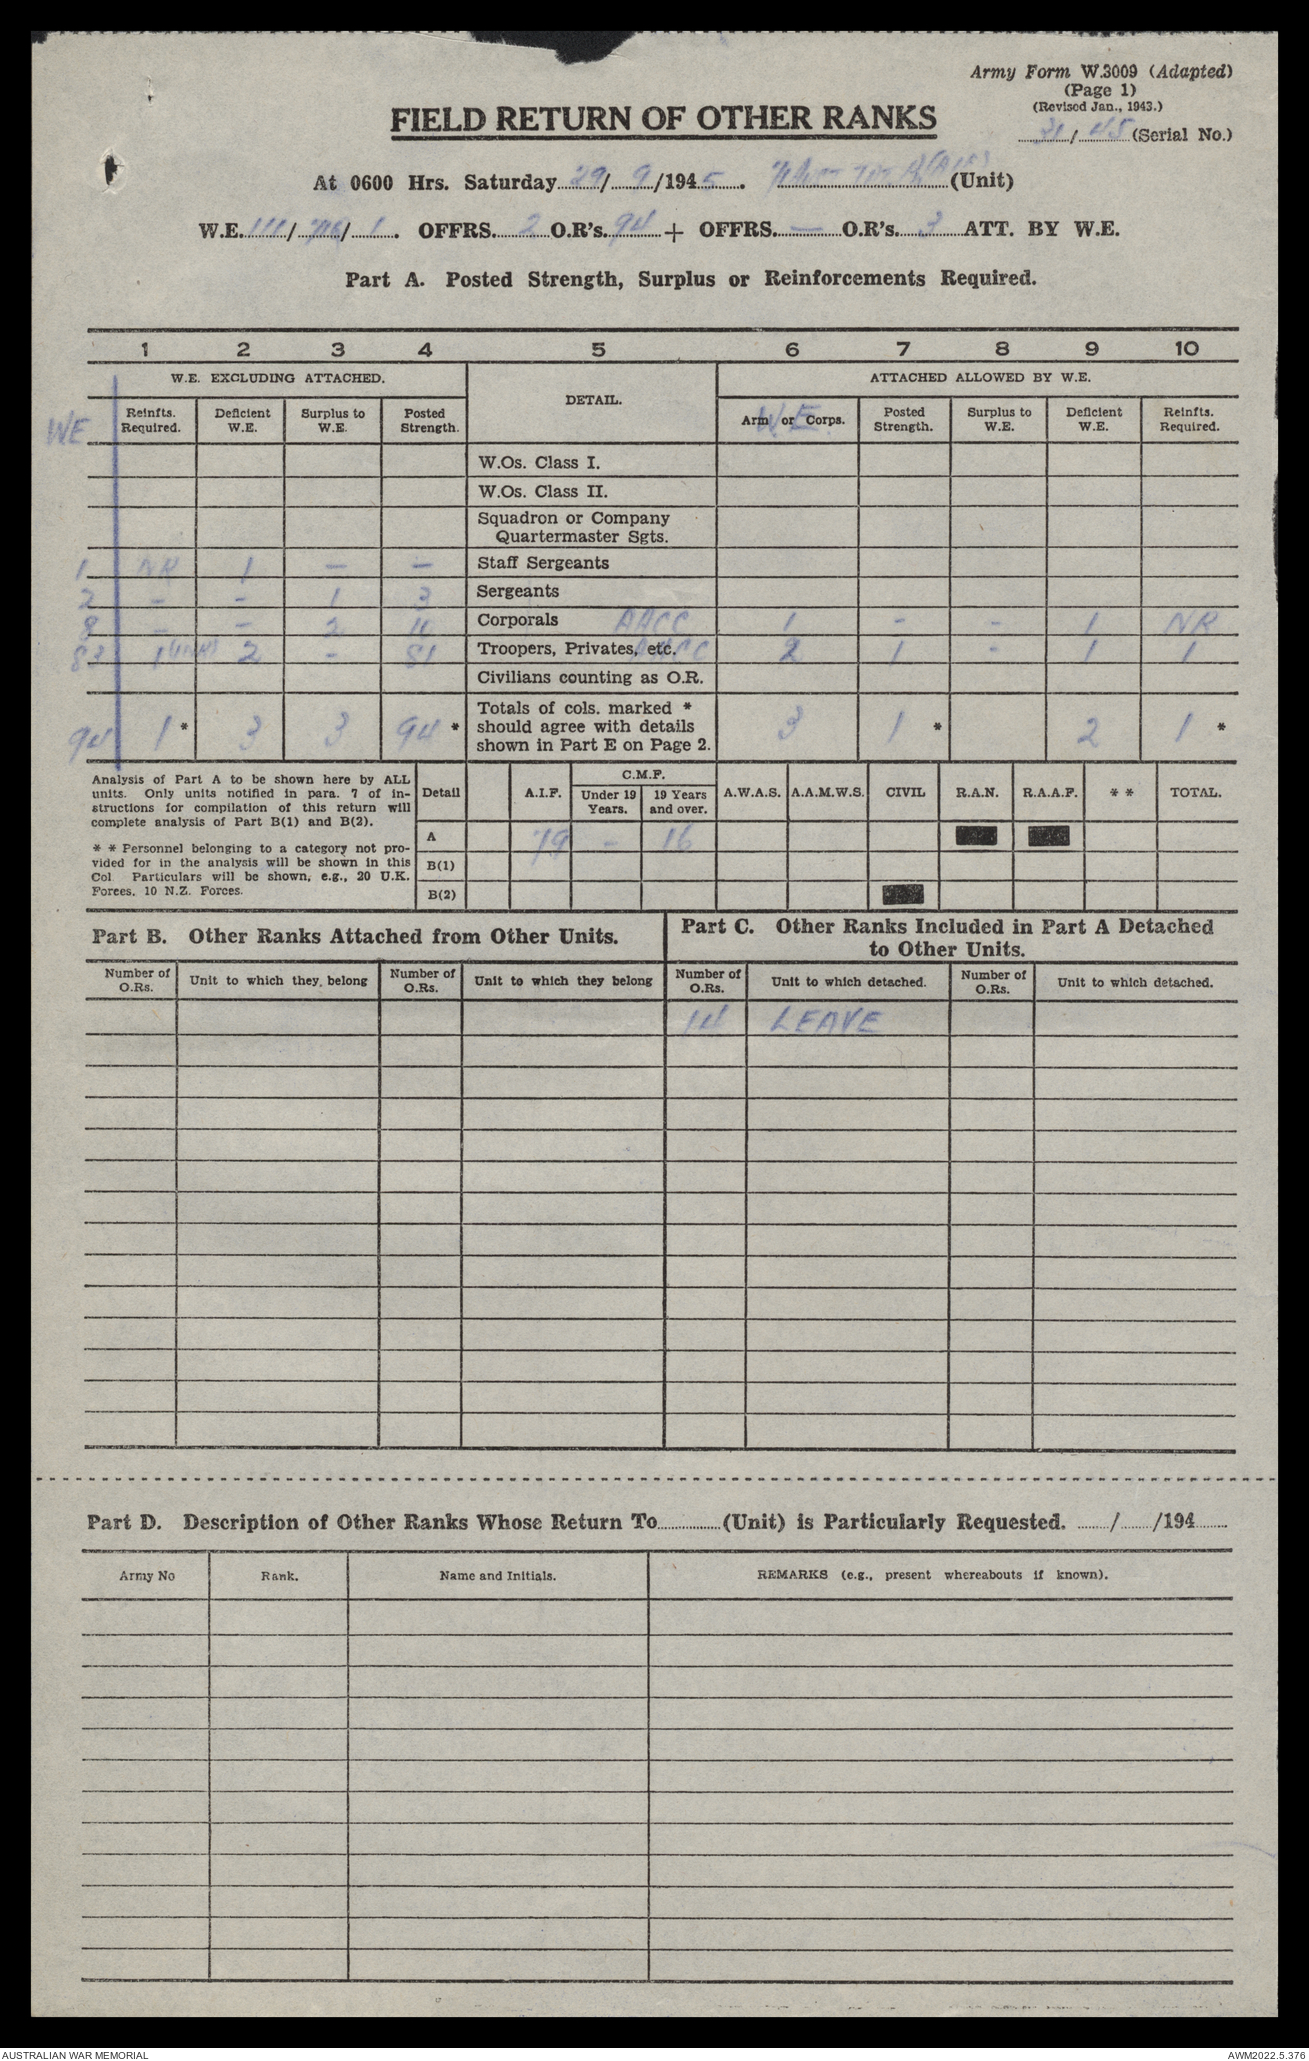 Army Form W.3009 (Adapted)
(Page 1)
(Revised Jan., 1943.)
31/45 (Serial No.)
FIELD RETURN OF OTHER RANKS
At 0600 Hrs. Saturday 29/9/1945. (Unit)
W.E. 111/ / 1. OFFRS. 2 O.R's. 94 + OFFRS. — O.R's. 3 ATT. BY W.E.
Part A. Posted Strength, Surplus or Reinforcements Required.
1 2 3 4 5 6 7 8 9 10
W.E. EXCLUDING ATTACHED. DETAIL. ATTACHED ALLOWED BY W.E.
WE Reinfts. Required. Deficient W.E. Surplus to W.E. Posted Strength. Arm or Corps. W.E. Posted Strength. Surplus to W.E. Deficient W.E. Reinfts. Required.
W.Os. Class I.
W.Os. Class II.
Squadron or Company
Quartermaster Sgts.
1 NR 1 — — Staff Sergeants
2 - - 1 3 Sergeants
8 - - 2 10 Corporals AACC 1 - - 1 NR
83 1 2 - 81 Troopers, Privates, etc. AACC 2 1 - 1 1
Civilians counting as O.R.
94 1* 3 3 94* Totals of cols. marked * should agree with details shown in Part E on Page 2. 3 1* 2 1*
Analysis of Part A to be shown here by ALL
units. Only units notified in para. 7 of in-
structions for compilation of this return will
complete analysis of Part B(1) and B(2).
* * Personnel belonging to a category not pro-
vided for in the analysis will be shown in this
Col. Particulars will be shown, e.g., 20 U.K.
Forces, 10 N.Z. Forces.
Detail A.I.F. C.M.F. Under 19 Years. 19 Years and over. A.W.A.S. A.A.M.W.S. CIVIL R.A.N. R.A.A.F. * * TOTAL.
A 79 - 16
B(1)
B(2)
Part B. Other Ranks Attached from Other Units.
Part C. Other Ranks Included in Part A Detached
to Other Units.
Number of O.Rs. Unit to which they belong Number of O.Rs. Unit to which they belong Number of O.Rs. Unit to which detached. Number of O.Rs. Unit to which detached.
14 LEAVE
Part D. Description of Other Ranks Whose Return To (Unit) is Particularly Requested. / /194
Army No Rank. Name and Initials. REMARKS (e.g., present whereabouts if known).
AUSTRALIAN WAR MEMORIAL
AWM2022.5.376